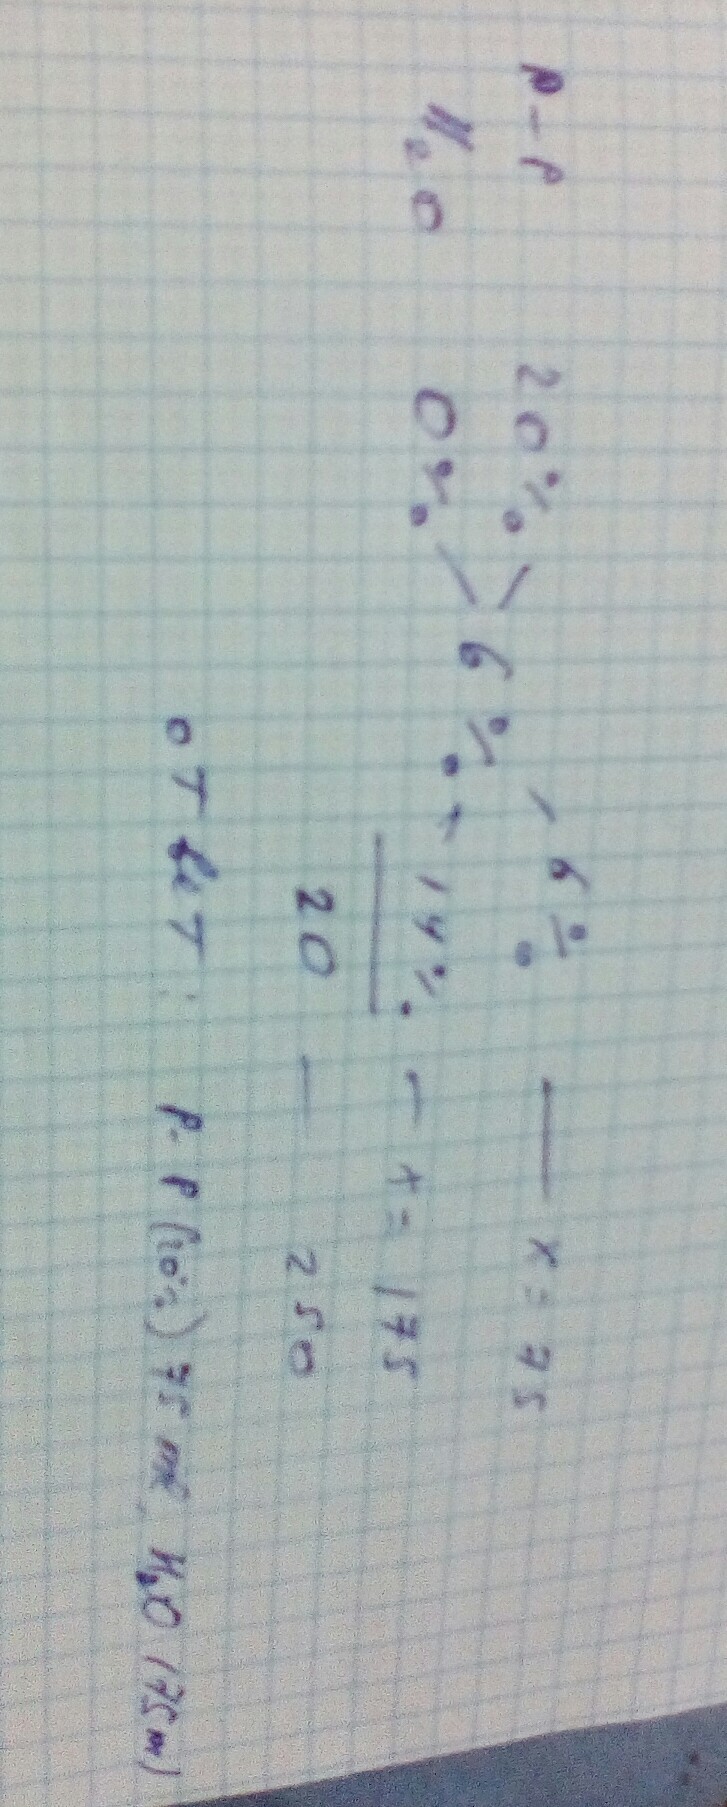 р-р 20% 6% — x = 75
6%
H₂O 0% 14% — x = 175
20 — 250
ответ: р-р (20%) 75 мл, H₂O 175 мл